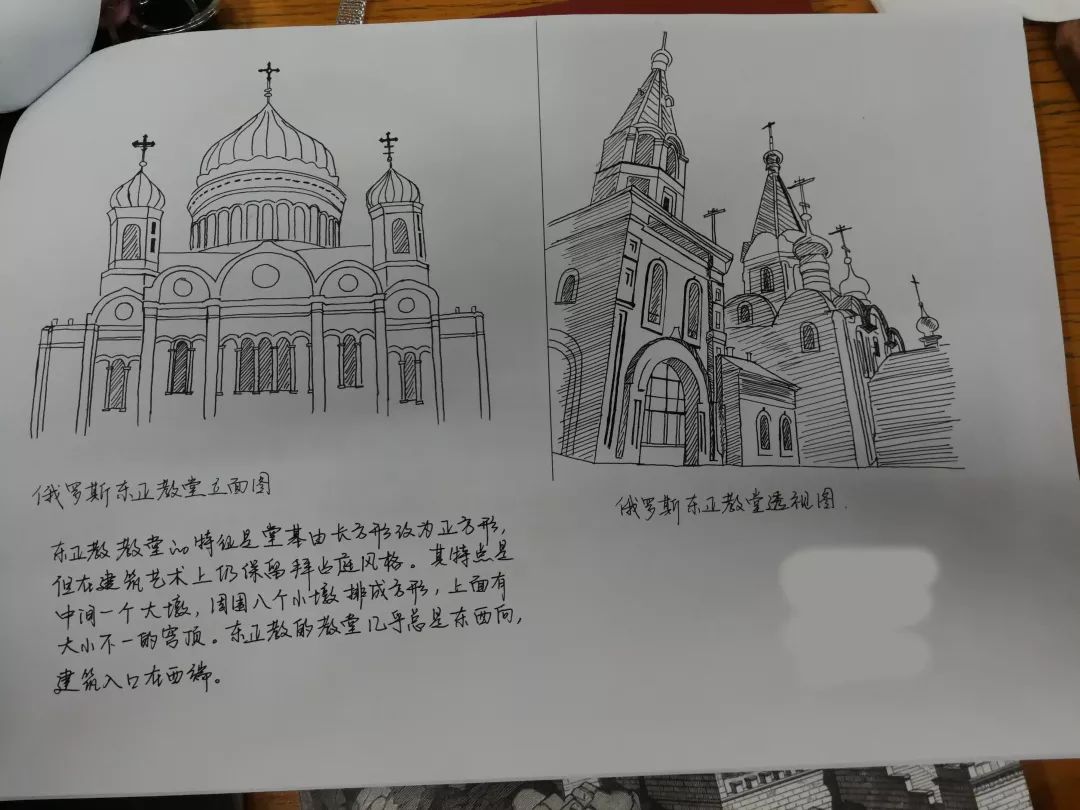 俄罗斯东正教堂立面图
东正教教堂的特征是堂基由长方形改为正方形，
但在建筑艺术上仍保留拜占庭风格。其特点是
中间一个大墩，周围八个小墩排成方形，上面有
大小不一的穹顶。东正教的教堂几乎总是东西向，
建筑入口在西端。
俄罗斯东正教堂透视图.